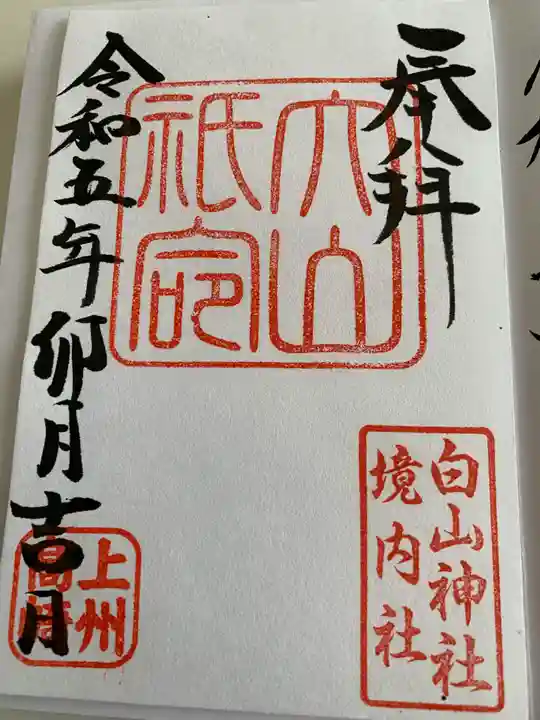 奉拝
大山
祇命
白山神社
境内社
令和五年卯月吉日
上州
高崎